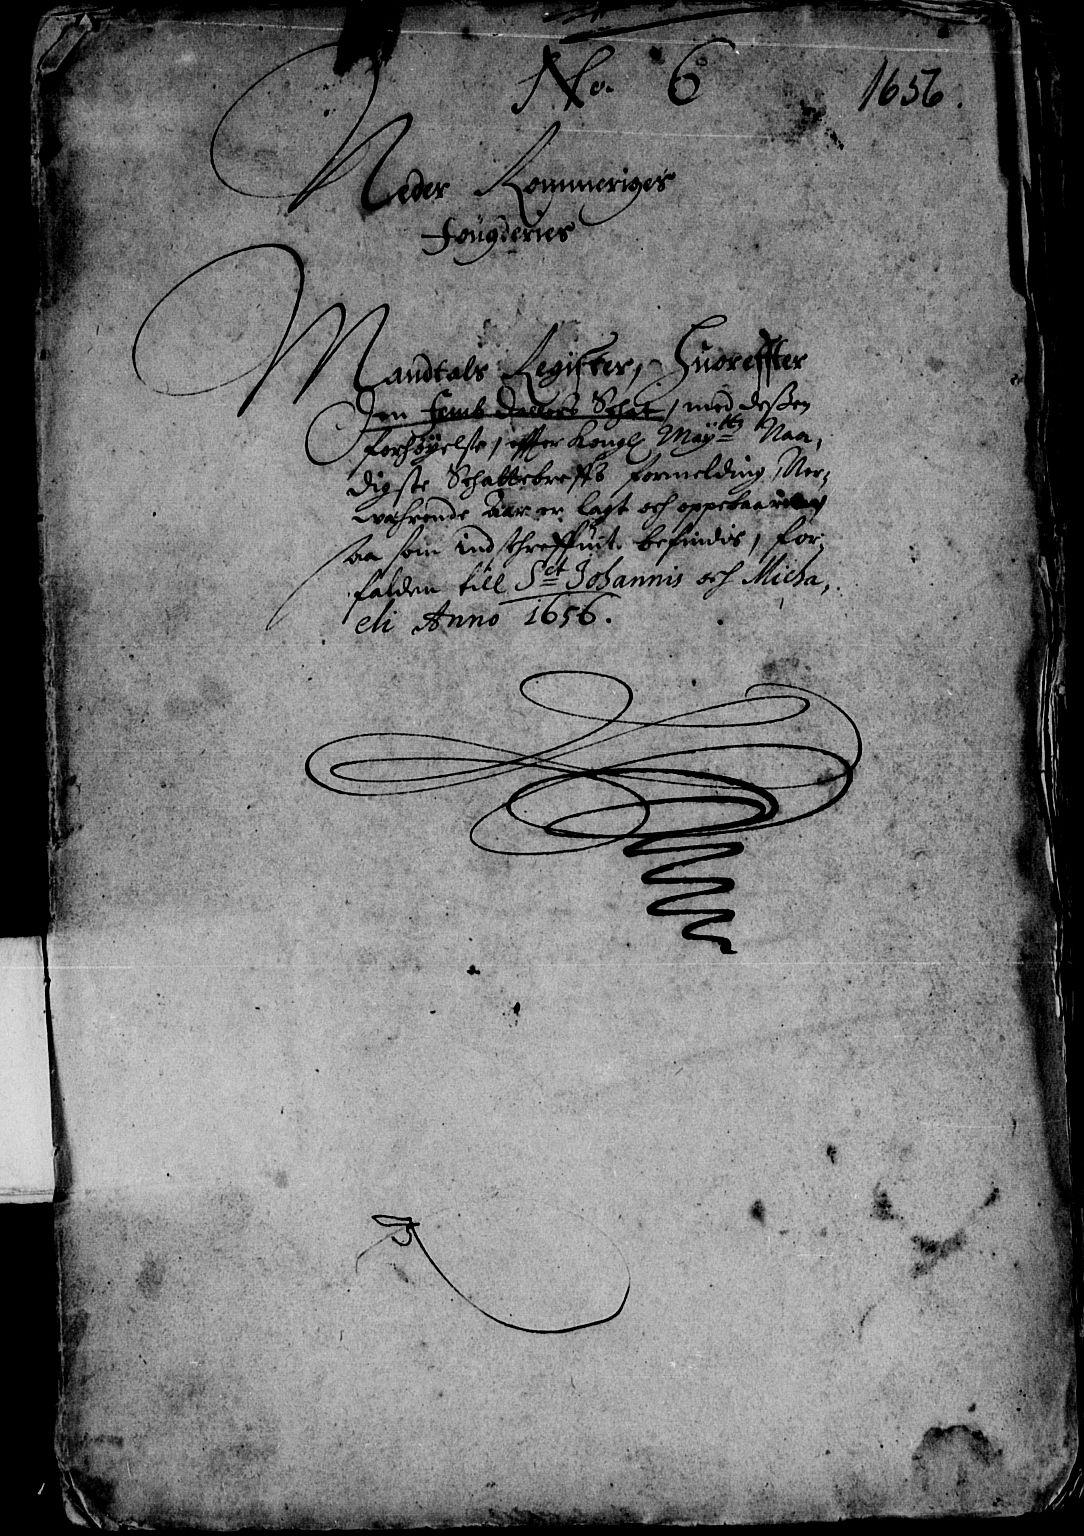 No. 6 1656.
Neder Rommeriges
Fougderies
Mandtals Register, Huoreffter
Den Femb Dallers Schat, med deßen
forhøyelse, effter Kongl Maytz Naa,
digste Schattebreffs formelding Ner,
wahrende Aar er lagt och oppebaaren
saa som ind schreffuit befindis, for,
falden till Sct Johannis och Micha,
eli Anno 1656.